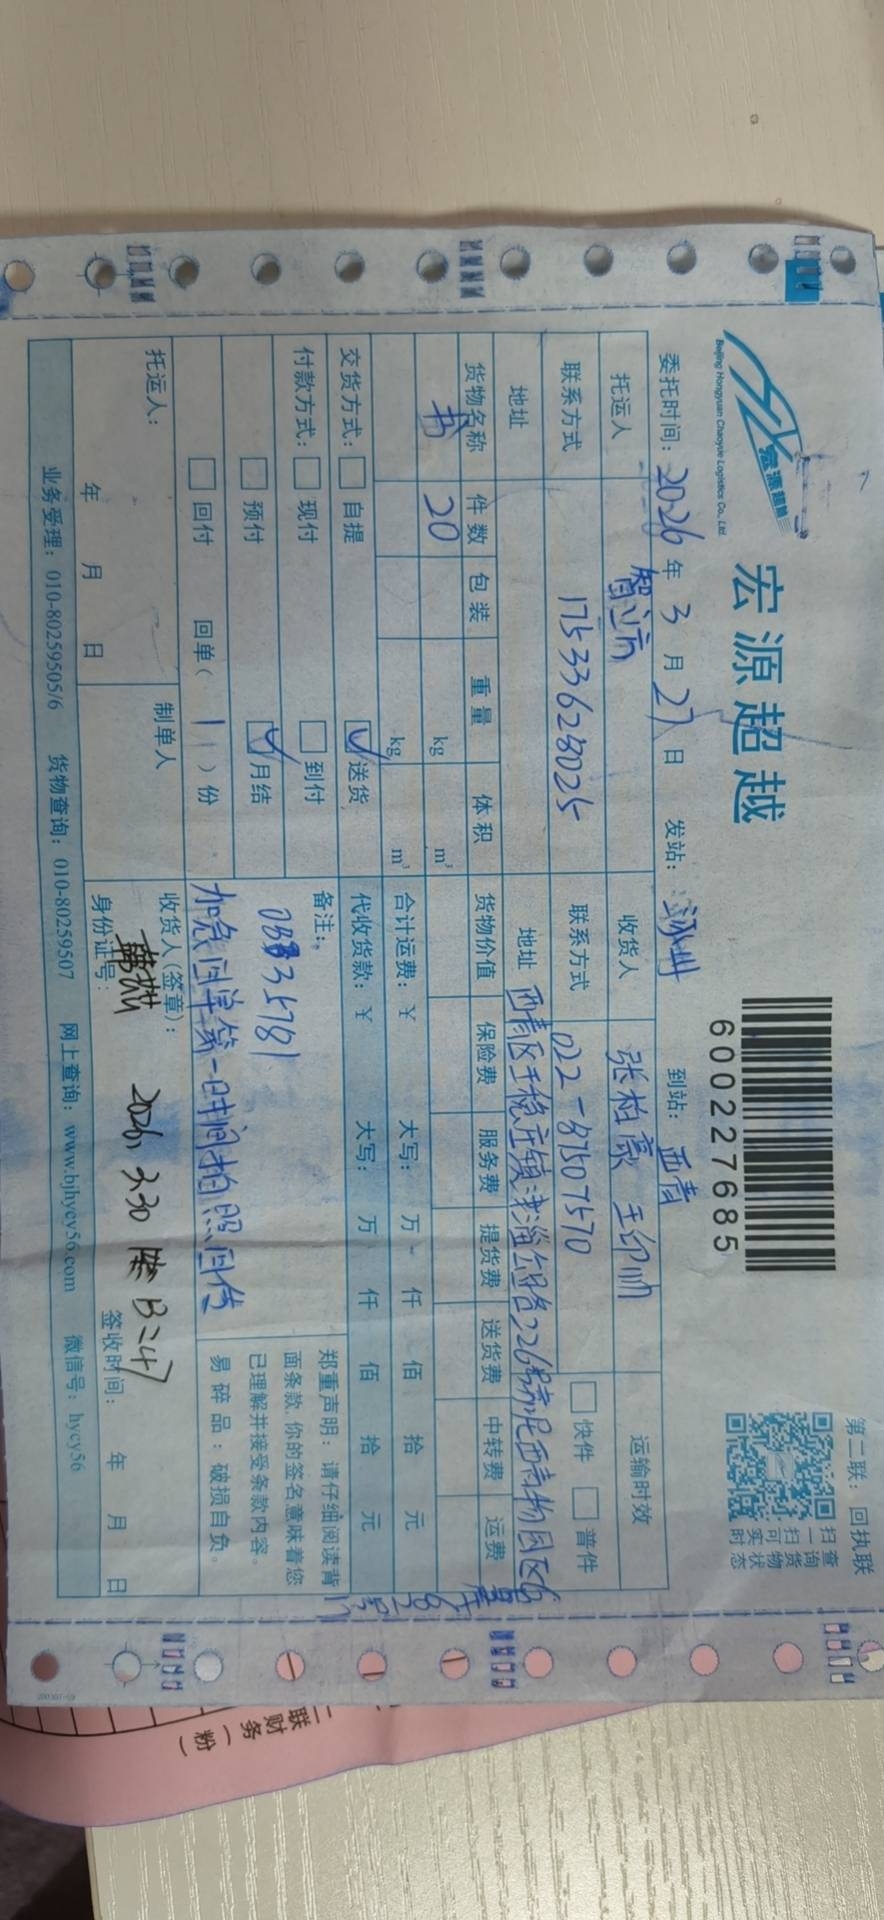 第二联：回执联
宏源超越
宏源超越
Beijing Hongyuan Chaoyue Logistics Co., Ltd.
6000227685
扫一扫可实时
查询货物状态
委托时间：2026年3月27日 发站：涿州 到站：西青
托运人 智立方 收货人 张柏豪 王印帅 运输时效
联系方式 17533628025 联系方式 022-87507570 快件 普件
地址 地址 西青区王稳庄镇 226号 西青物园区6
号
货物名称 件数 包装 重量 体积 货物价值 保险费 服务费 提货费 送货费 中转费 运费
书 20 kg m³
kg m³ 合计运费：￥ 大写： 万 仟 佰 拾 元
交货方式： 自提 送货 代收货款：￥ 大写： 万 仟 佰 拾 元
付款方式： 现付 到付
预付 月结
回付 回单（1）份
备注：
加急回单第一时间拍照回传
郑重声明：请仔细阅读背
面条款，你的签名意味着您
已理解并接受条款内容。
易碎品：破损自负。
托运人：
年 月 日
制单人
收货人（签章）：
身份证号：
2026.3.30 B247
签收时间： 年 月 日
业务受理：010-80259505/6 货物查询：010-80259507 网上查询：www.bjhycy56.com 微信号：hycy56
联财务（粉）